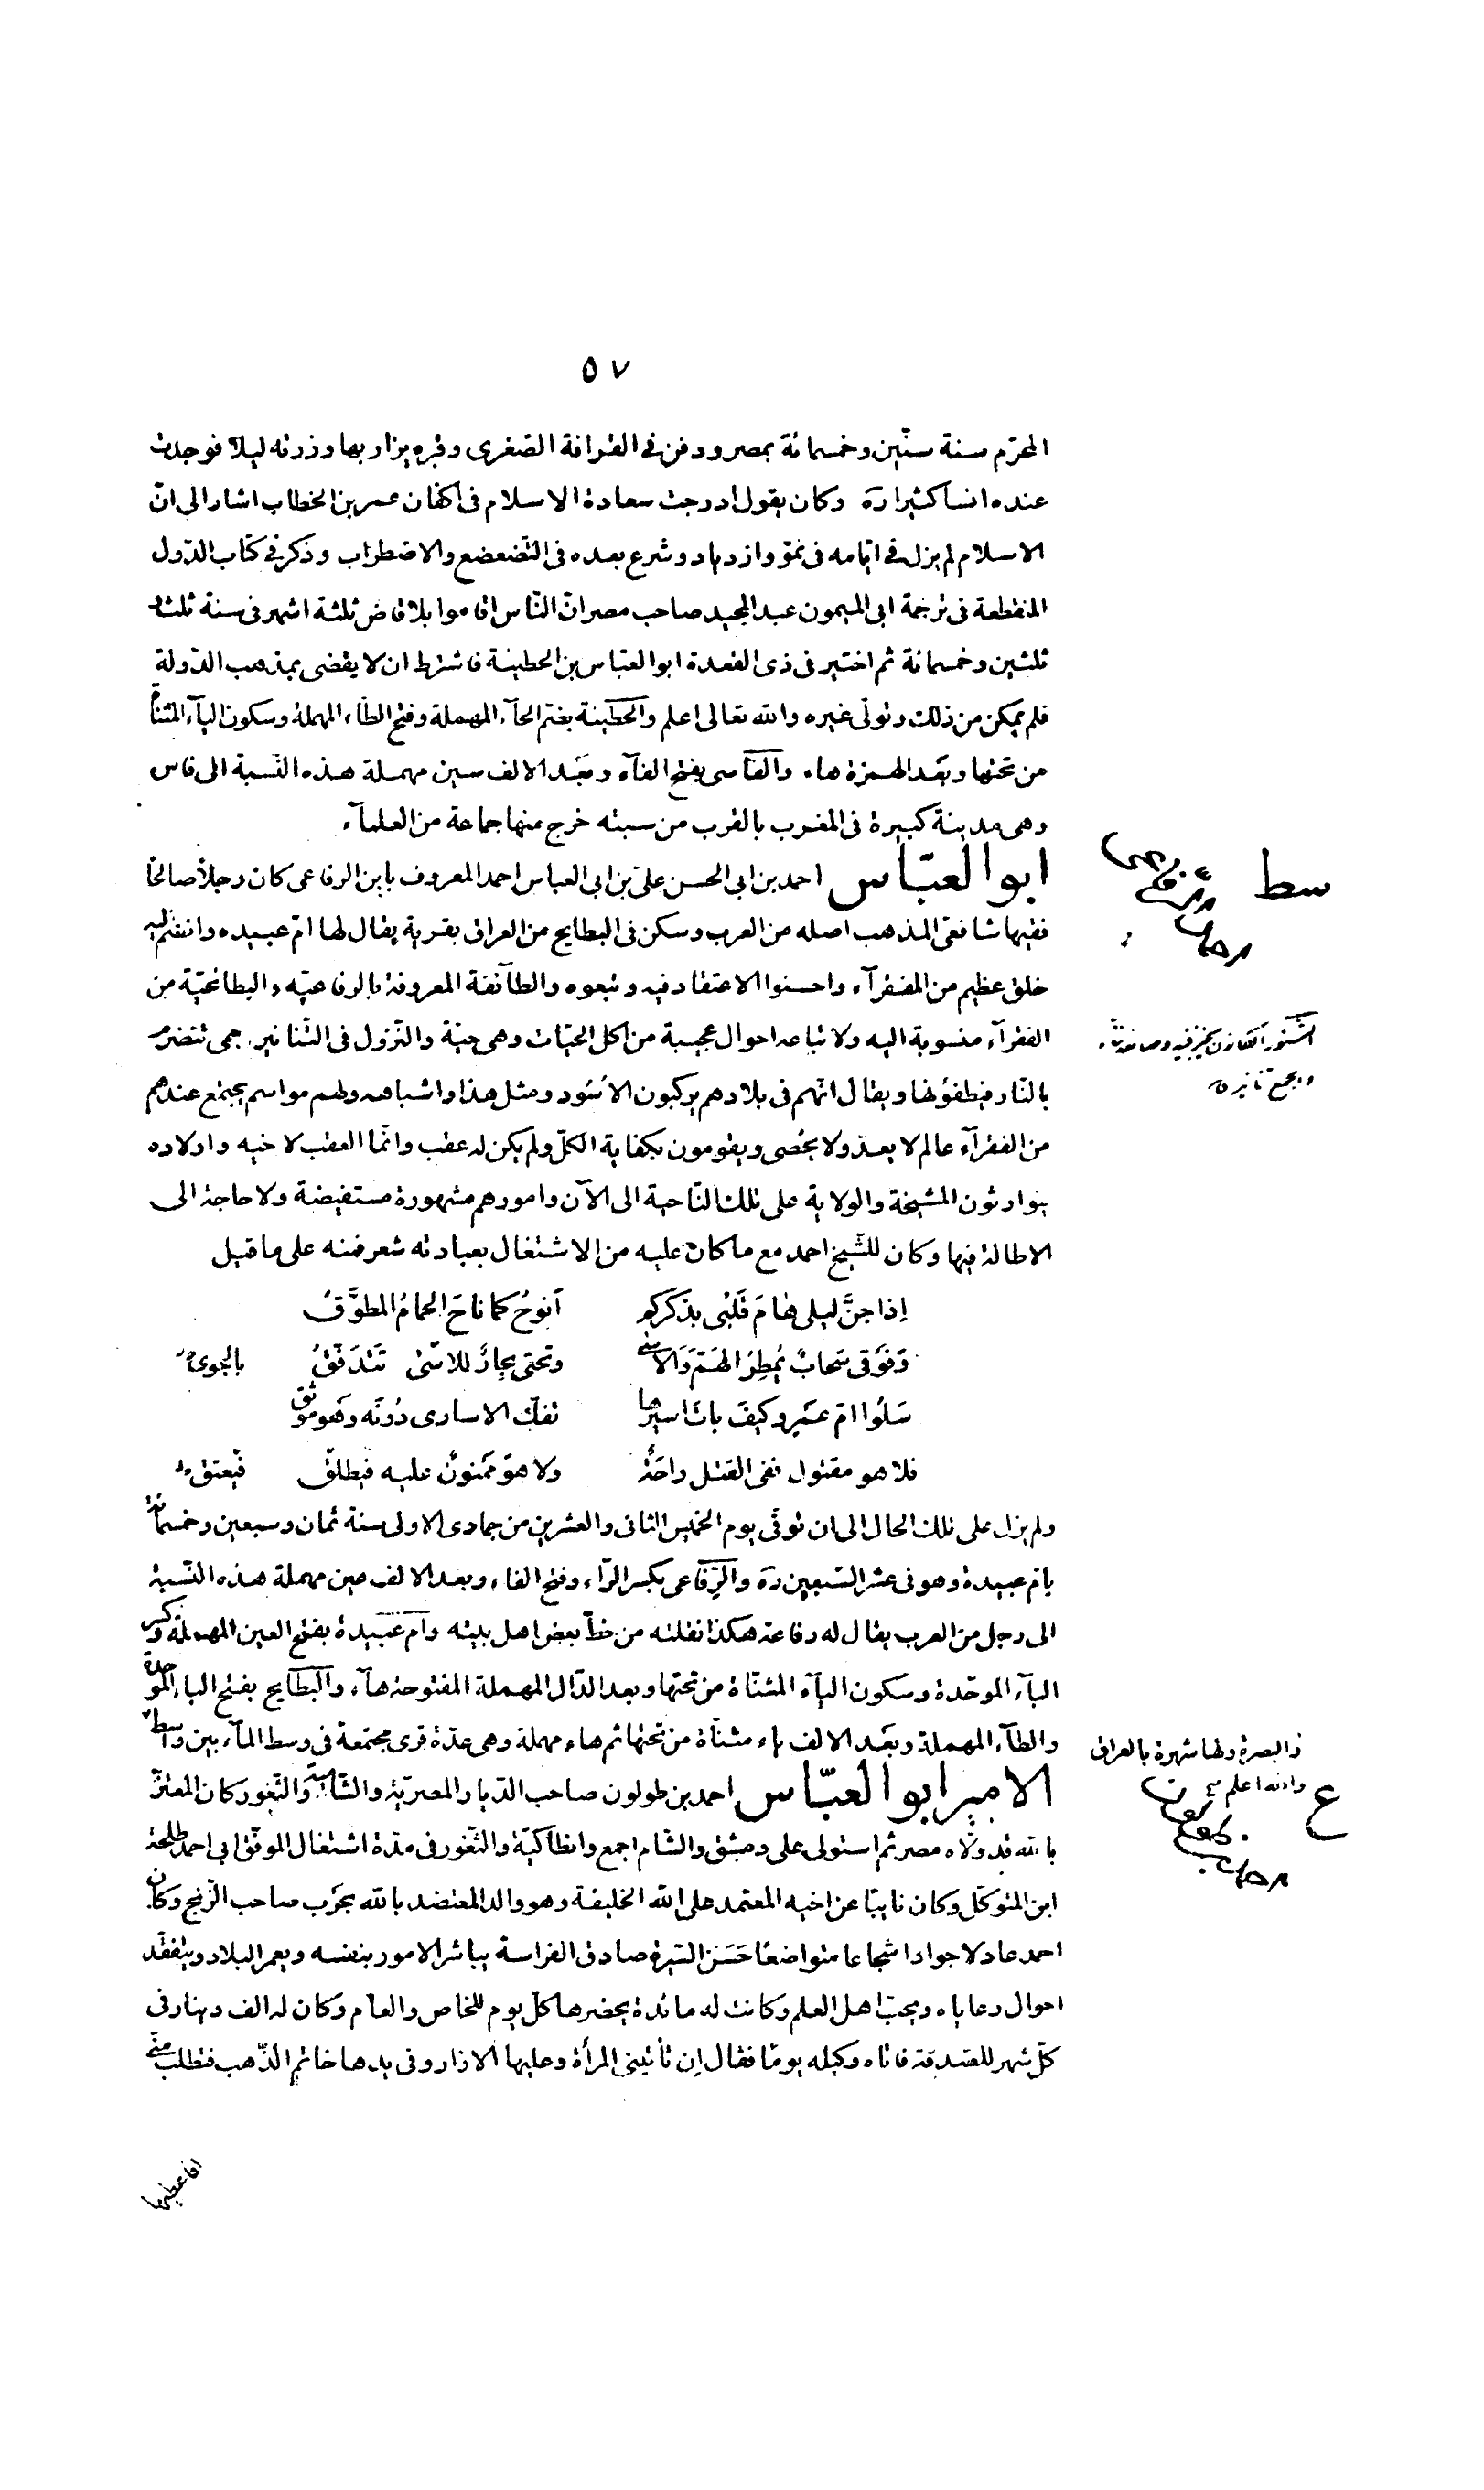 ٥٧
المحرّم سنة ستّين وخمسمائة بمصر ودفن فى القرافة الصّغرى وقبره يزار بها وزرته ليلا فوجدت
عنده انسا كثيرا رَه وكان يقول ادرجت سعادة الاسلام فى اكفان عمر بن الخطاب اشار الى انّ
الاسلام لم يزل فى ايّامه فى نموّ وازدياد وشرع بعده فى التّضعضع والاضطراب وذكر فى كتاب الدّول
المنقطعة فى ترجمة ابى الميمون عبد المجيد صاحب مصر انّ النّاس اقاموا بلا قاض ثلثة اشهر فى سنة ثلث و
ثلثين وخمسمائة ثم اختير فى ذى القعدة ابو العبّاس بن الحطيئة فاشترط ان لا يقضى بمذهب الدّولة
فلم يمكن من ذلك وتولّى غيره والله تعالى اعلم والحطيئة بضم الحآء المهملة وفتح الطّاء المهملة وسكون اليآء المثنّاة
من تحتها وبَعد الهمزة هاء والفاسى بفتح الفآء وبَعد الالف سين مهملة هذه النّسبة الى فاس
وهى مدينة كبيرة فى المغرب بالقرب من سبته خرج منها جماعة من العلمآء
سط ابو العبّاس احمد بن ابى الحسن علىّ بن ابى العباس احمد المعروف بابن الرفاعى كان رجلاً صالحًا
احمد الرفاعى
فقيها شافعىّ المذهب اصله من العرب وسكن فى البطايح من العراق بقرية يقال لها امّ عبيده وانضم اليه
خلق عظيم من الفقرآء واحسنوا الاعتقاد فيه وتبعوه والطآئفة المعروفة بالرفاعيّه والبطائحيّة من
الفقرآء منسوبة اليه ولاتباعه احوال عجيبة من اكل الحيّات وهى حيّة والنّزول فى التّنانير وهى تتضرم
التّنّور يخبز فيه
والجمع تنانير
بالنّار فيطفؤنها ويقال انّهم فى بلادهم يركبون الاسُود ومثل هذا واشباهه ولهم مواسم يجتمع عندهم
من الفقرآء عالم لا يعدّ ولا يحُصى ويقومون بكفاية الكلّ ولم يكن له عقب وانّما العقب لاخيه واولاده
يتوارثون المشيخة والولاية على تلك النّاحية الى الآن وامورهم مشهورة مستفيضة ولا حاجة الى
الاطالة فيها وكان للشّيخ احمد مع ما كان عليه من الاشتغال بعبادته شعر فمنه على ما قيل
اِذا جنَّ ليلى هامَ قَلبْى بذكَركم أنوحُ كما ناحَ الحمامُ المطوَّقُ
وَفَوَقى سَحابٌ يُمطِرُ الهَمّ وَالاسى وتحتى بحِارٌ للاسَى تَتَدَفّقُ بالجوى
سَلُوا امّ عمَرو كيفَ باتَ اسيرها تفكّ الاسارى دُونَه وَهو موثق
فلا هو مقتول ففى القتل راحَةٌ ولا هوَ ممَنونٌ عليه فيطلق فيعتق
ولم يزل على تلك الحال الى ان توفّى يوم الخميس الثانى والعشرين من جمادى الاولى سنة ثمان وسبعين وخمسمائة
بام عبيدة وهو فى عشر السّبعين رَه والرّفاعى بكسر الرّاء وفتح الفاء وبعد الالف عين مهملة هذه النّسبة
الى رجل من العرب يقال له رفاعة هكذا نقلته من خطّ بعض اهل بيته وامّ عَبيدة بفتح العين المهملة وكسر
البآء الموحّدة وسكون اليآء المثنّاة من تحتها وبعد الدّال المهملة المفتوحة هآء والبَطايح بفتح الباء الموحدة
والطآء المهملة وبعَد الالف ياء مثنّاة من تحتها ثم حاء مهملة وهى عدّة قرى مجتمعة فى وسط المآء بين واسط
والبصرة ولها شهرة بالعراق
والله اعلم
ع الامير ابو العبّاس احمد بن طولون صاحب الدّيار المصريّة والشّاميّة والثّغور كان المعتزّ
احمد بن طولون
بالله قد ولّاه مصر ثم استولى على دمشق والشّام اجمع وانطاكيّة والثّغور فى مدّة اشتغال الموفّق ابى احمد طلحة
ابن المتوكّل وكان نايبًا عن اخيه المعتمد على الله الخليفة وهو والد المعتضد بالله بحرَب صاحب الزّنج وكان
احمد عادلا جوادا شجاعا متواضعًا حَسَن السّيرة صادق الفراسة يباشر الامور بنفسه ويعمر البلاد ويتفقّد
احوال رعاياه ويحبّ اهل العلم وكانت له مائدة يحضرها كلّ يوم للخاص والعام وكان له الف دينار فى
كلّ شهر للصّدقة فاتاه وكيله يومًا فقال اِن تأتينى المرأة وعليها الازار وفى يدها خاتم الذّهب فتطلب منّى
افاعطيها